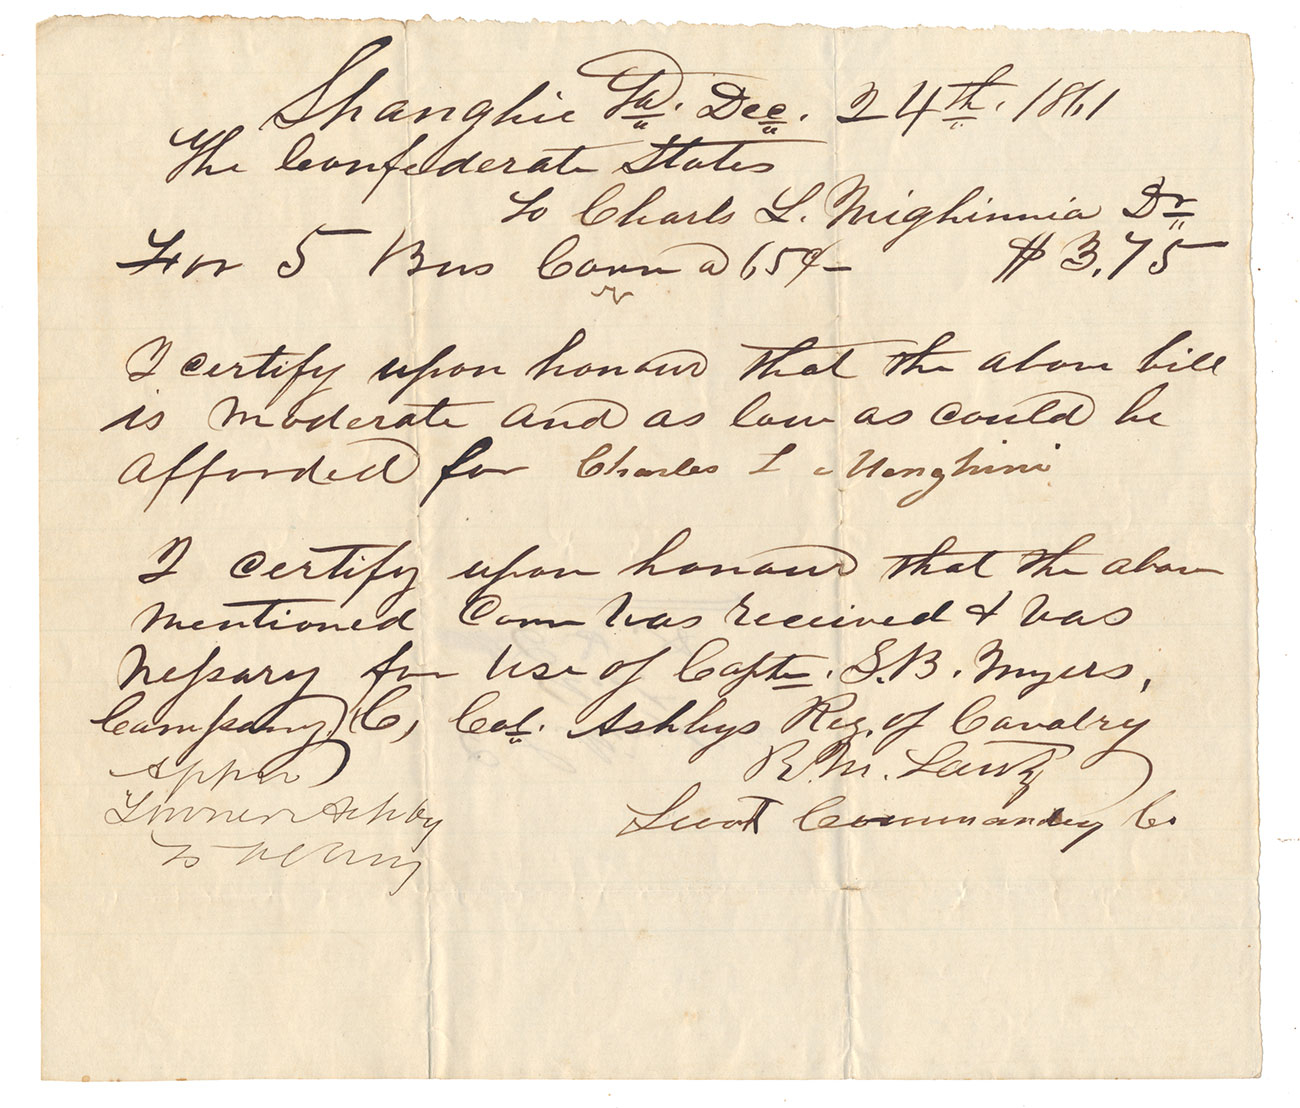 Shanghie Va. Dec. 24th. 1861
The Confederate States
To Charls L. Mighinnia Dr
For 5 Bus Corn a 65¢ $3.75
I certify upon honour that the above bill
is moderate and as low as could be
afforded for Charles L Menghini
I certify upon honour that the above
mentioned Corn was received & was
Nessary for use of Capte. S.B. Myers,
Company, C, Col. Ashbys Reg. of Cavalry
R.M. Lantz
Lieut Commanding Co
Appr
Turner Ashby